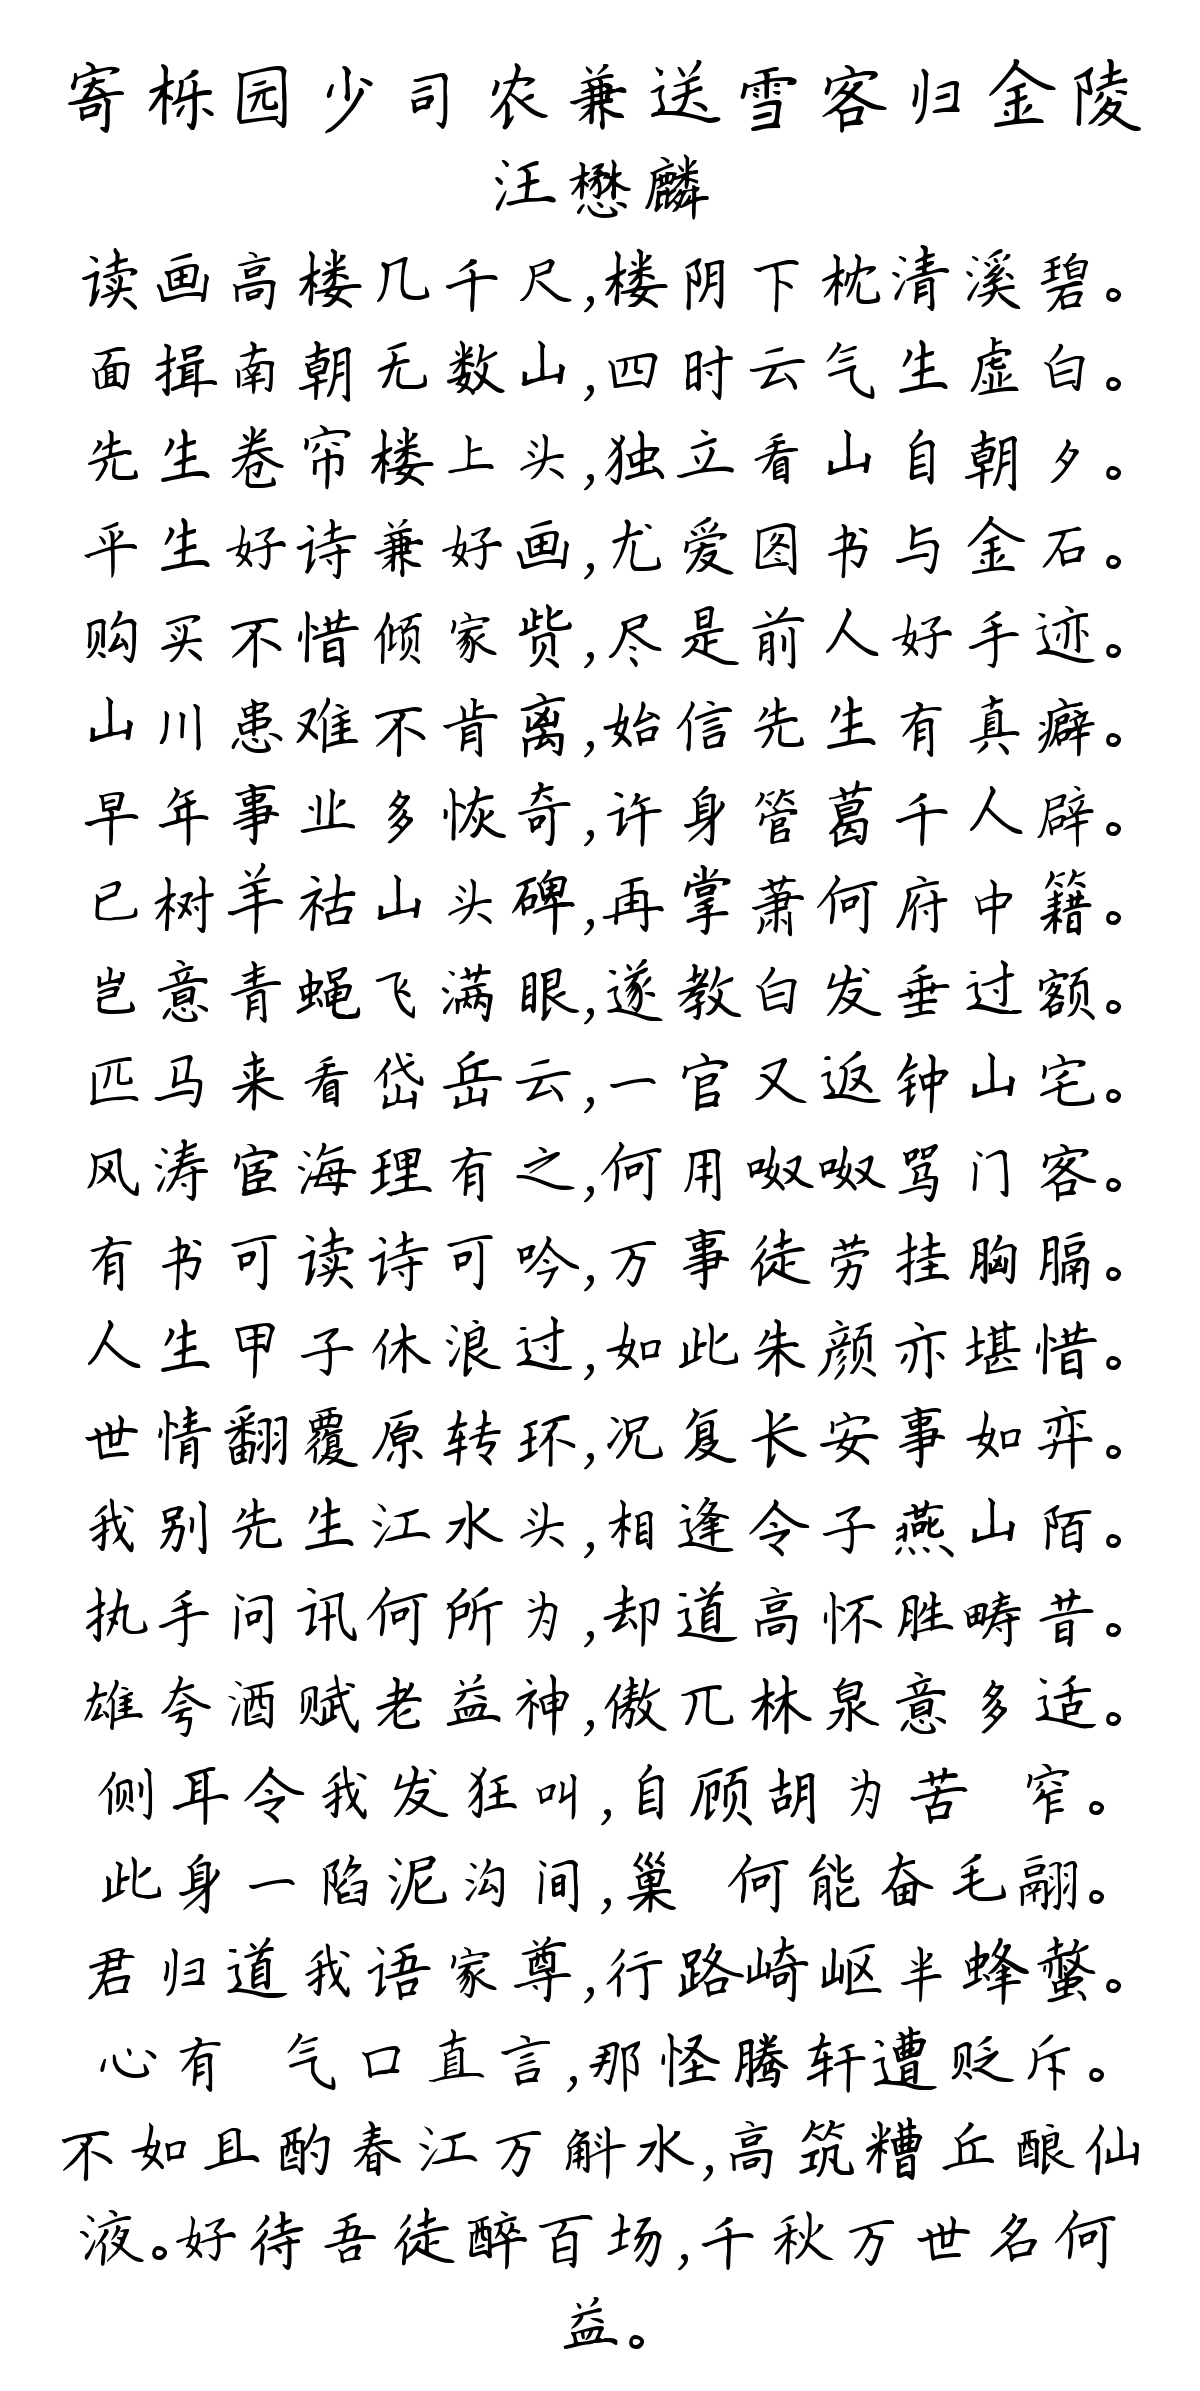 寄栎园少司农兼送雪客归金陵
汪懋麟
读画高楼几千尺,楼阴下枕清溪碧。
面揖南朝无数山,四时云气生虚白。
先生卷帘楼上头,独立看山自朝夕。
平生好诗兼好画,尤爱图书与金石。
购买不惜倾家赀,尽是前人好手迹。
山川患难不肯离,始信先生有真癖。
早年事业多恢奇,许身管葛千人辟。
已树羊祜山头碑,再掌萧何府中籍。
岂意青蝇飞满眼,遂教白发垂过额。
匹马来看岱岳云,一官又返钟山宅。
风涛宦海理有之,何用呶呶骂门客。
有书可读诗可吟,万事徒劳挂胸膈。
人生甲子休浪过,如此朱颜亦堪惜。
世情翻覆原转环,况复长安事如弈。
我别先生江水头,相逢令子燕山陌。
执手问讯何所为,却道高怀胜畴昔。
雄夸酒赋老益神,傲兀林泉意多适。
侧耳令我发狂叫,自顾胡为苦 窄。
此身一陷泥沟间,巢 何能奋毛翮。
君归道我语家尊,行路崎岖半蜂螫。
心有 气口直言,那怪腾轩遭贬斥。
不如且酌春江万斛水,高筑糟丘酿仙
液。好待吾徒醉百场,千秋万世名何
益。